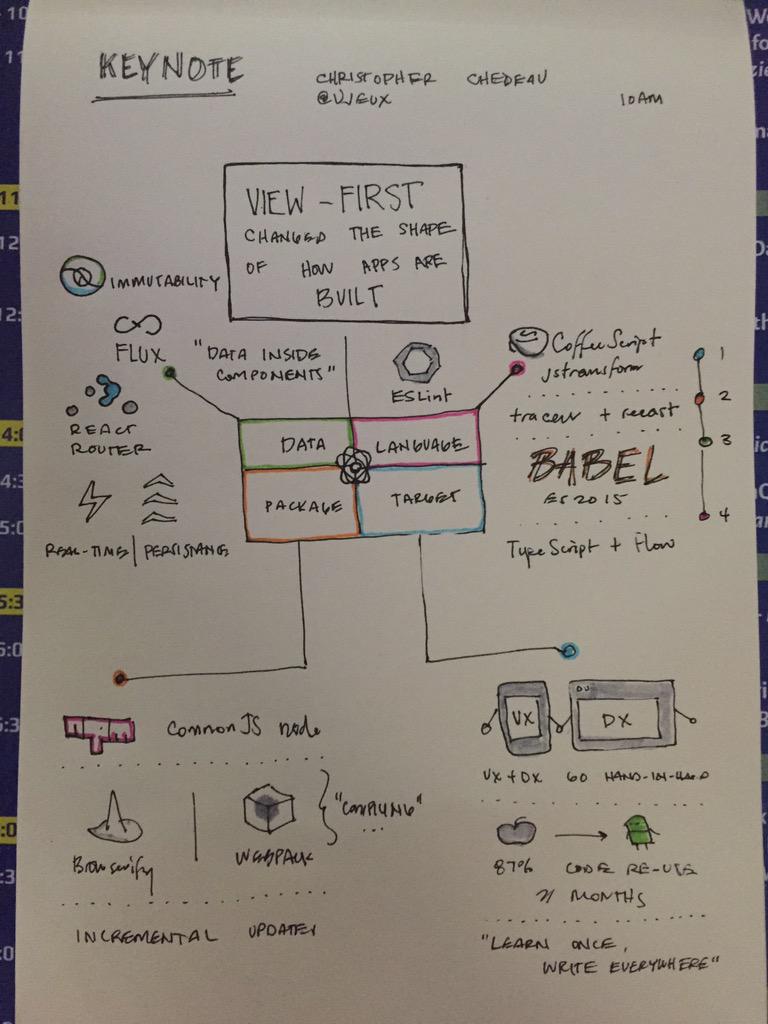 KEYNOTE
CHRISTOPHER CHEDEAU
@VJEUX
10AM
VIEW-FIRST
CHANGED THE SHAPE
OF HOW APPS ARE
BUILT
IMMUTABILITY
FLUX
"DATA INSIDE
COMPONENTS"
ESLint
CoffeeScript
jstransform
1
REACT
ROUTER
traceur + recast
2
DATA
LANGUAGE
3
BABEL
ES 2015
PACKAGE
TARGET
4
REAL-TIME | PERSISTANCE
TypeScript + Flow
CommonJS node
UX
DX
UX + DX GO HAND-IN-HAND
Browserify
WEBPACK
"COMPILING"
...
87% CODE RE-USE
MONTHS
INCREMENTAL UPDATES
"LEARN ONCE,
WRITE EVERYWHERE"